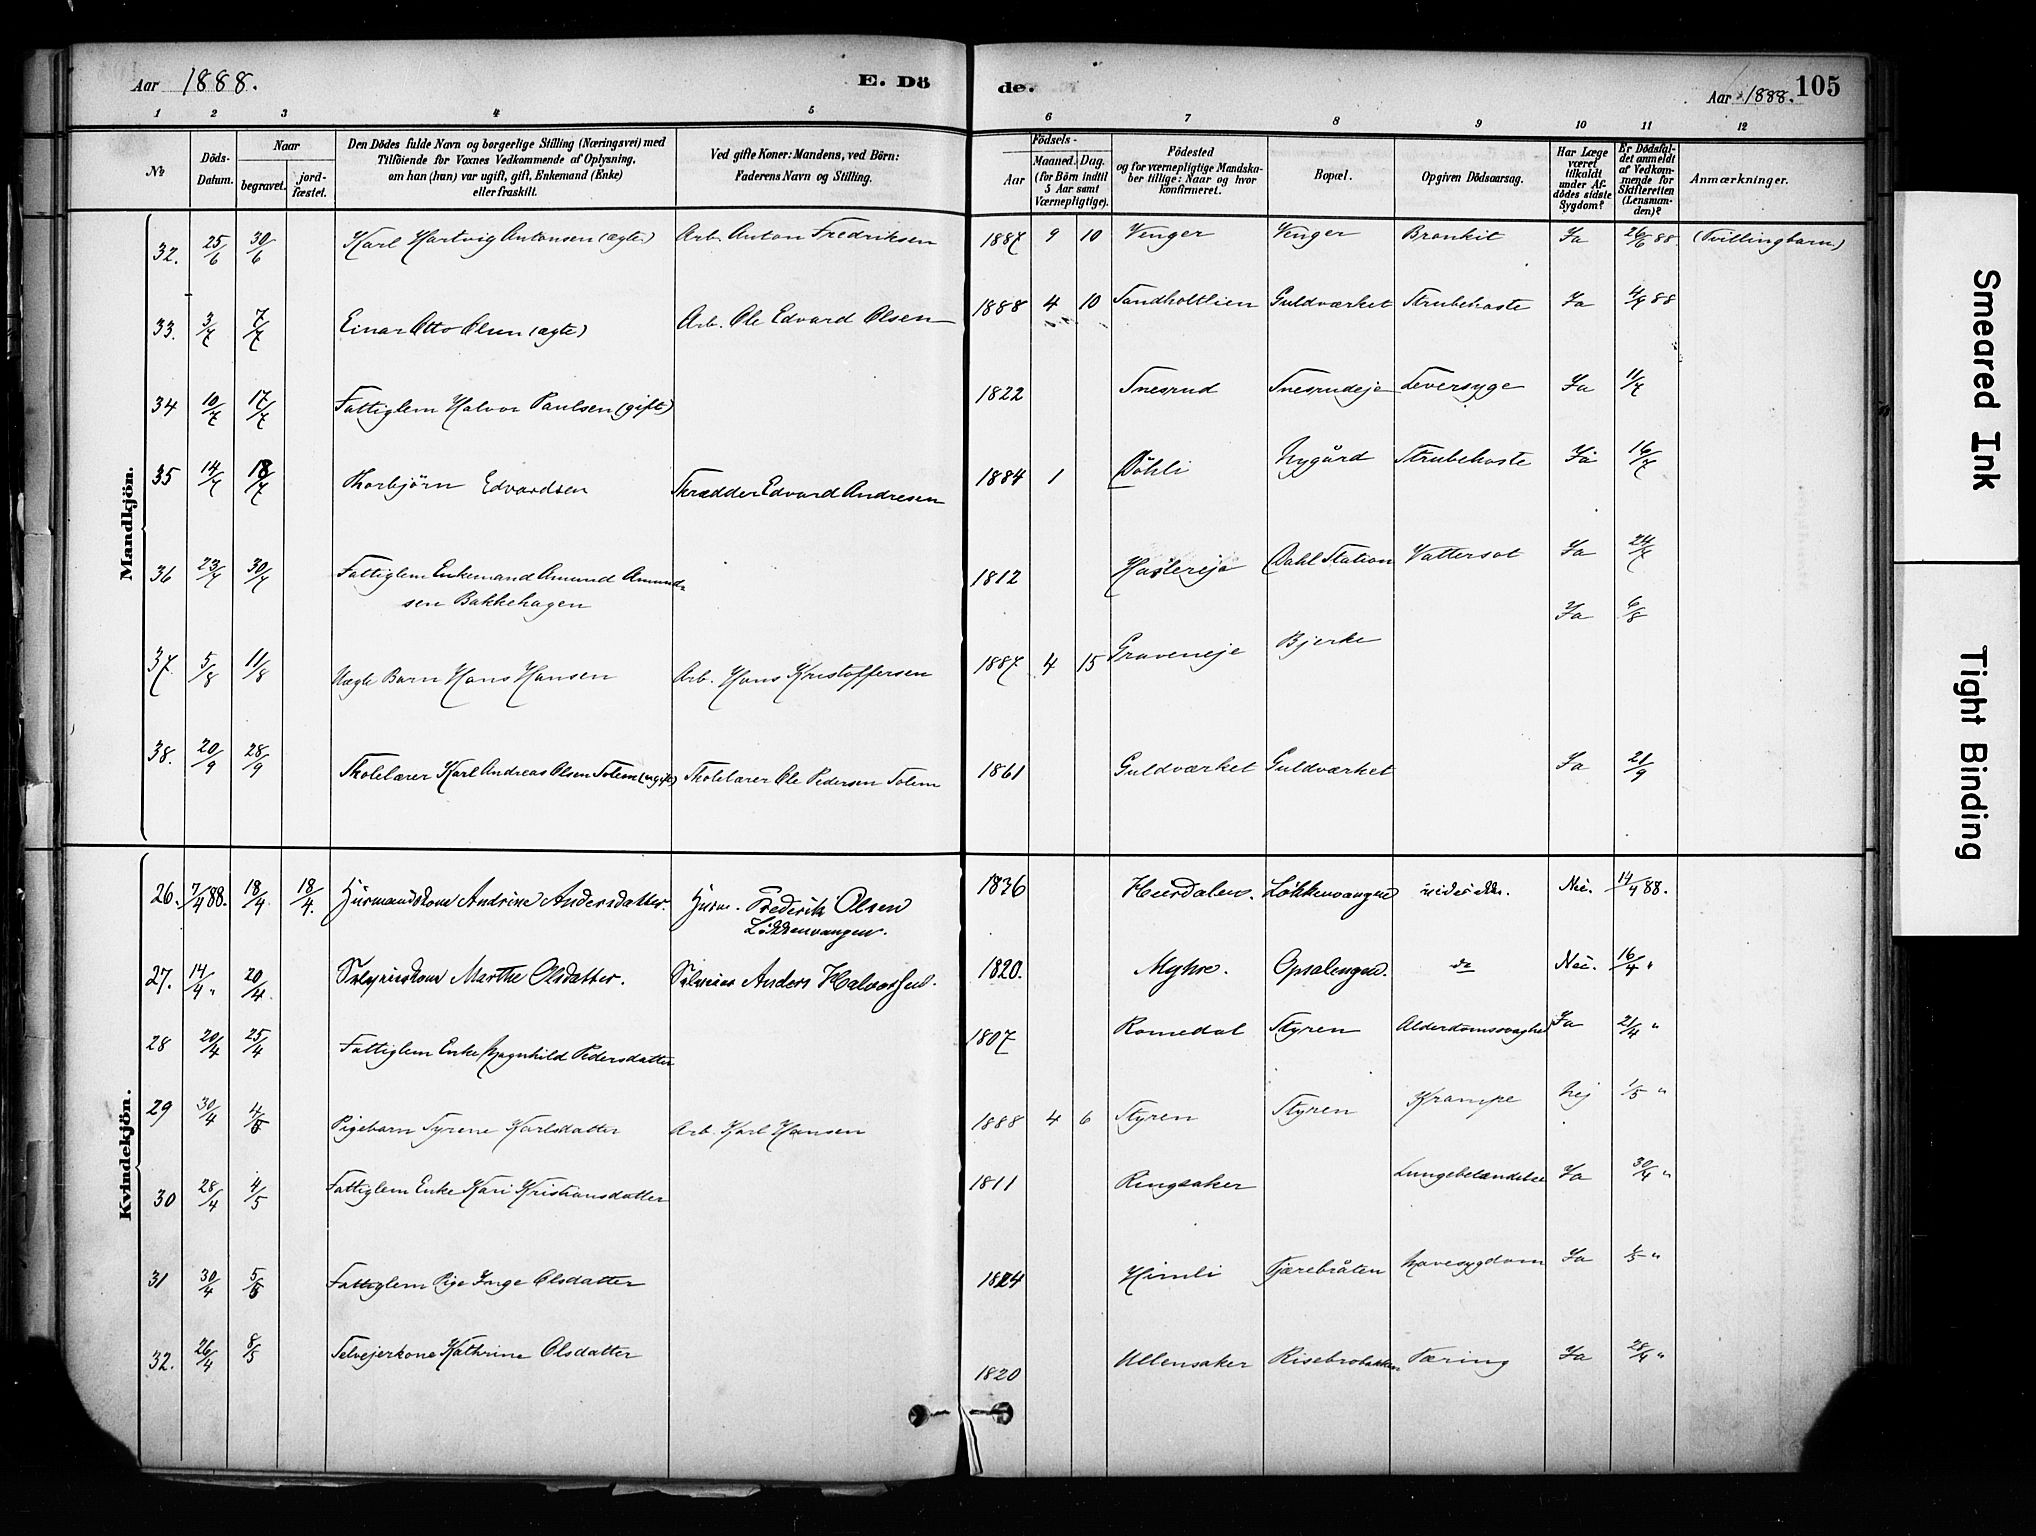 Aar 1888. E. Dö de. Aar 1888. 105
1 2 3 4 5 6 7 8 9 10 11 12
No Döds-Datum. Naar begravet. jord-fæstet. Den Dödes fulde Navn og borgerlige Stilling (Næringsvei) med Tilföiende for Voxnes Vedkommende af Oplysning, om han (hun) var ugift, gift, Enkemand (Enke) eller fraskilt. Ved gifte Koner: Mandens, ved Börn: Faderens Navn og Stilling. Födsels- Aar Maaned. Dag. (for Börn indtil 5 Aar samt Værnepligtige). Födested og for værnepligtige Mandska-ber tillige: Naar og hvor konfirmeret. Bopæl. Opgiven Dödsaarsag. Har Læge været tilkaldt under Af-dödes sidste Sygdom? Er Dödsfal-det anmeldt af Vedkom-mende for Skifteretten (Lensman-den)? Anmærkninger.
Mandkjön.
32. 25/6 30/6 Karl Hartvig Antonsen (ægte) Arb. Anton Fredriksen 1887 9 10 Venger Venger Bronkit Ja 26/6 88 (Tvillingbarn)
33. 3/7 7/7 Einar Otto Olsen (ægte) Arb. Ole Edvard Olsen 1888 4 10 Sandholtlien Guldværket Strubehoste Ja 4/7 88
34 10/7 17/7 Fattiglem Halvor Paulsen (gift) 1822 Snesrud Snesrudeje Leversyge Ja 11/7
35 14/7 18/7 Thorbjörn Edvardsen Skrædder Edvard Andresen 1884 1 Döhli Nygård Strubehoste Ja 16/7
36 23/7 30/7 Fattiglem Enkemand Amund Amund-
sen Bakkehagen 1812 Haslereje Dahl Station Vattersot Ja 24/7
37 5/8 11/8 Uægte Barn Hans Hansen Arb. Hans Kristoffersen 1887 4 15 Graveneje Bjerke Ja 6/8
38. 20/9 28/9 Skolelærer Karl Andreas Olsen Solem (ugift) Skolelærer Ole Pedersen Solem 1861 Guldværket Guldværket Ja 21/9
Kvindekjön.
26. 7/4 88. 18/4 18/4. Husmandskone Andrine Andersdatter. Husm. Frederik Olsen
Lökkenvangen. 1836 Heerdalen. Lökkenvangen Nei. 14/4 88.
27. 14/4 " 20/4. Selveierkone Marthe Olsdatter. Selveier Anders Halvorsen. 1820. Myhre. Opsalengen. do Nei. 16/4 "
28 20/4 25/4 Fattiglem Enke Magnhild Pedersdatter 1807 Romedal Styren Alderdomssvaghed Ja 21/4 "
29 30/4 4/5 Pigebarn Syrene Karlsdatter Arb. Karl Hansen 1888 4 6 Styren Styren Krampe Nej 1/5 "
30 28/4 4/5 Fattiglem Enke Kari Kristiansdatter 1811 Ringsaker Lungebetændelse Ja 30/4 "
31 30/4 5/5 Fattiglem Pige Inge Olsdatter 1824 Himli Tjærebråten Mavesygdom Ja 1/5 "
32. 26/4 8/5 Selvejerkone Kathrine Olsdatter 1820 Ullensaker Risebrobakken Tæring Ja 28/4 "
Smeared Ink
Tight Binding